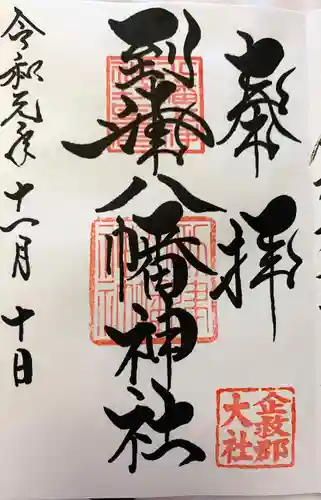 奉拝
企救郡
大社
到津八幡神社
令和元年十一月十日